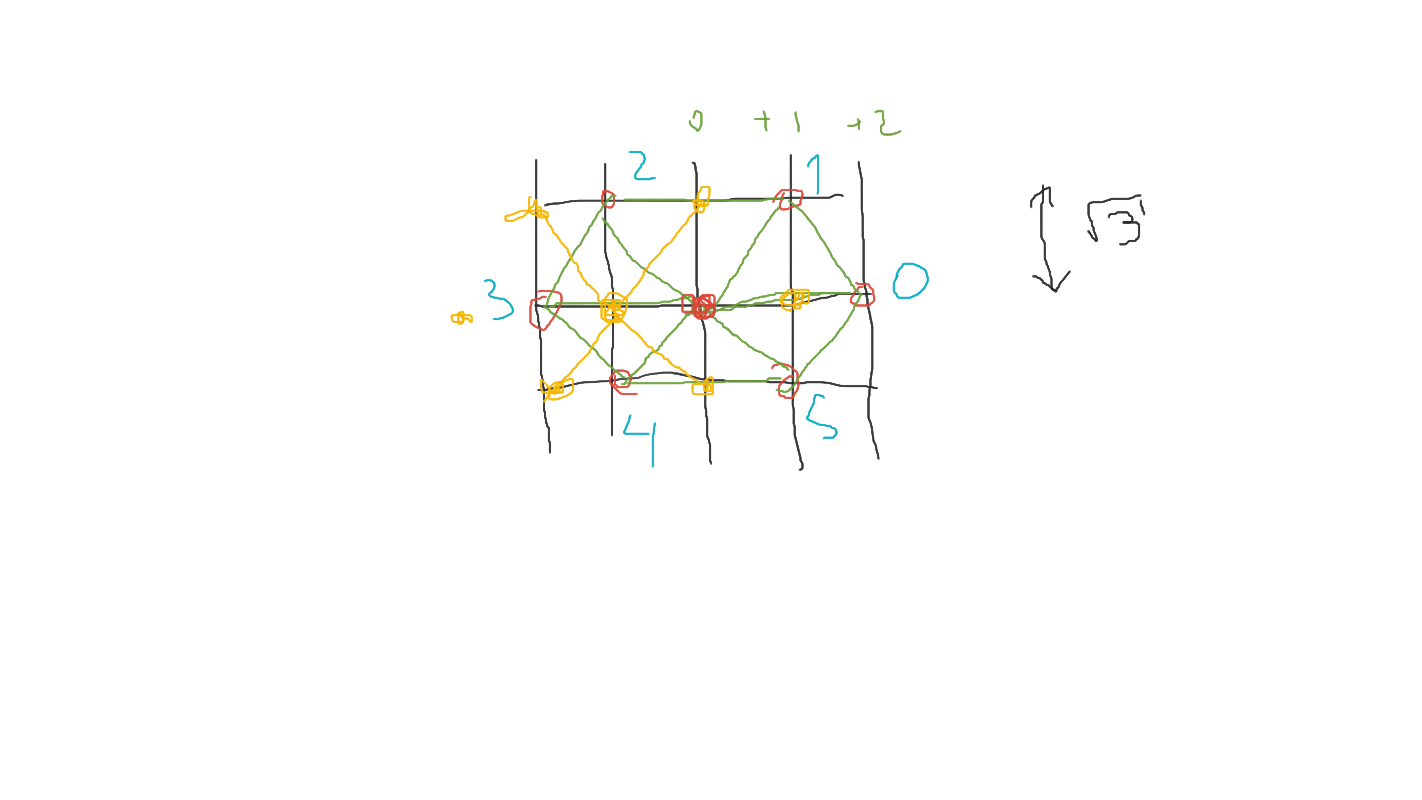 0 +1 +2
2 1
√3
3 0
4 5